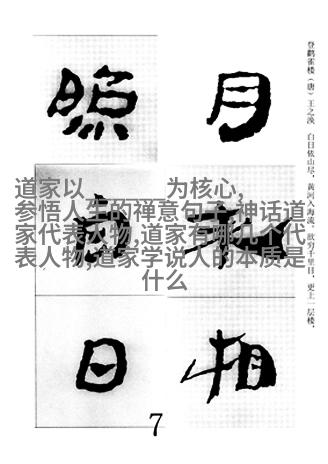 登鹳雀楼（唐）王之涣 白日依山尽，黄河入海流。欲穷千里目，更上一层楼。
月和相
照日
道家以 为核心,
参悟人生的禅意句子,神话道
家代表人物,道家有哪几个代
表人物,道家学说人的本质是
什么
7